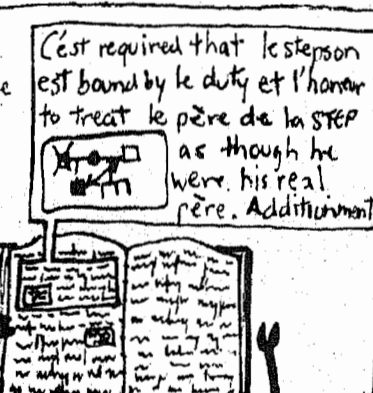 C'est required that le stepson
e
est bound by le duty et l'honeur
to treat le père de la STEP
as though he
were his real
père. Additionment